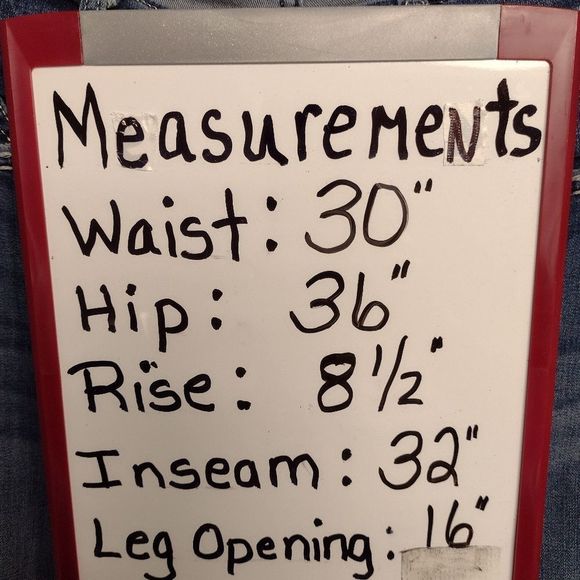 Measurements
Waist: 30"
Hip: 36"
Rise: 8 1/2"
Inseam: 32"
Leg Opening: 16"